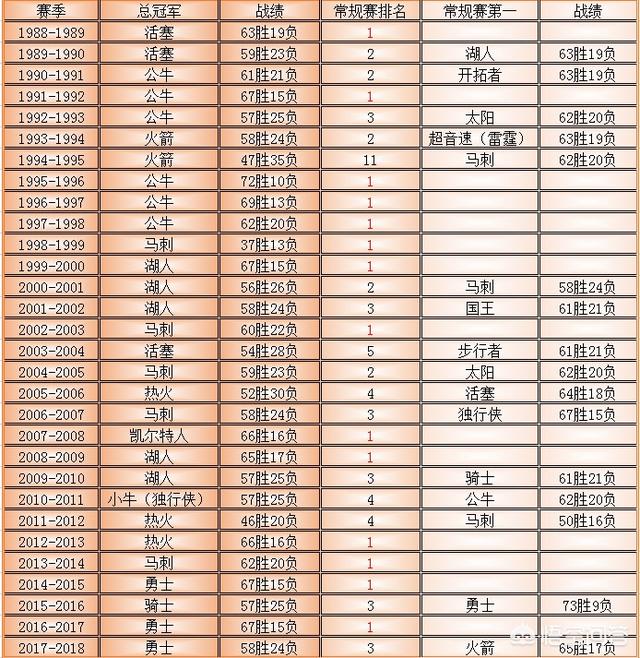 赛季 总冠军 战绩 常规赛排名 常规赛第一 战绩
1988-1989 活塞 63胜19负 1
1989-1990 活塞 59胜23负 2 湖人 63胜19负
1990-1991 公牛 61胜21负 2 开拓者 63胜19负
1991-1992 公牛 67胜15负 1
1992-1993 公牛 57胜25负 3 太阳 62胜20负
1993-1994 火箭 58胜24负 2 超音速（雷霆） 63胜19负
1994-1995 火箭 47胜35负 11 马刺 62胜20负
1995-1996 公牛 72胜10负 1
1996-1997 公牛 69胜13负 1
1997-1998 公牛 62胜20负 1
1998-1999 马刺 37胜13负 1
1999-2000 湖人 67胜15负 1
2000-2001 湖人 56胜26负 2 马刺 58胜24负
2001-2002 湖人 58胜24负 3 国王 61胜21负
2002-2003 马刺 60胜22负 1
2003-2004 活塞 54胜28负 5 步行者 61胜21负
2004-2005 马刺 59胜23负 2 太阳 62胜20负
2005-2006 热火 52胜30负 4 活塞 64胜18负
2006-2007 马刺 58胜24负 3 独行侠 67胜15负
2007-2008 凯尔特人 66胜16负 1
2008-2009 湖人 65胜17负 1
2009-2010 湖人 57胜25负 3 骑士 61胜21负
2010-2011 小牛（独行侠） 57胜25负 4 公牛 62胜20负
2011-2012 热火 46胜20负 4 马刺 50胜16负
2012-2013 热火 66胜16负 1
2013-2014 马刺 62胜20负 1
2014-2015 勇士 67胜15负 1
2015-2016 骑士 57胜25负 3 勇士 73胜9负
2016-2017 勇士 67胜15负 1
2017-2018 勇士 58胜24负 3 火箭 65胜17负
悟空问答